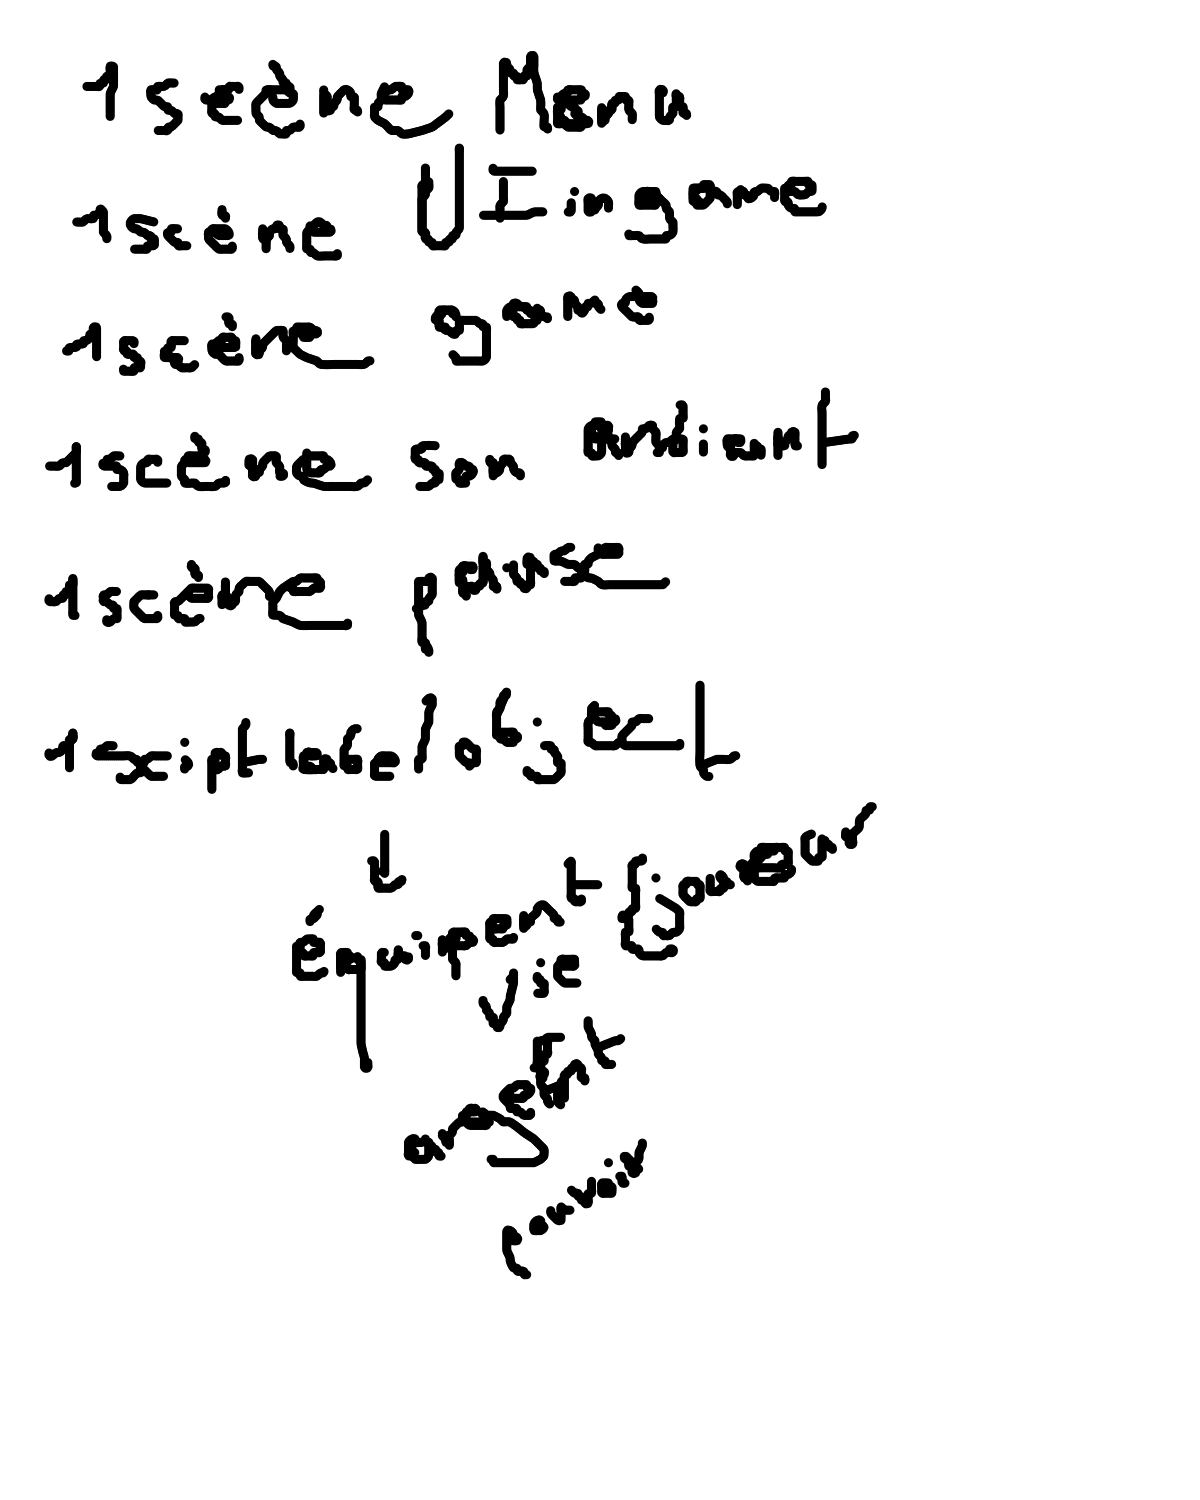 1 scène Menu
1 scène UI in game
1 scène game
1 scène son ambiant
1 scène pause
1 scriptlabel object
↓
équipent {joueur
vie
argent
pouvoir